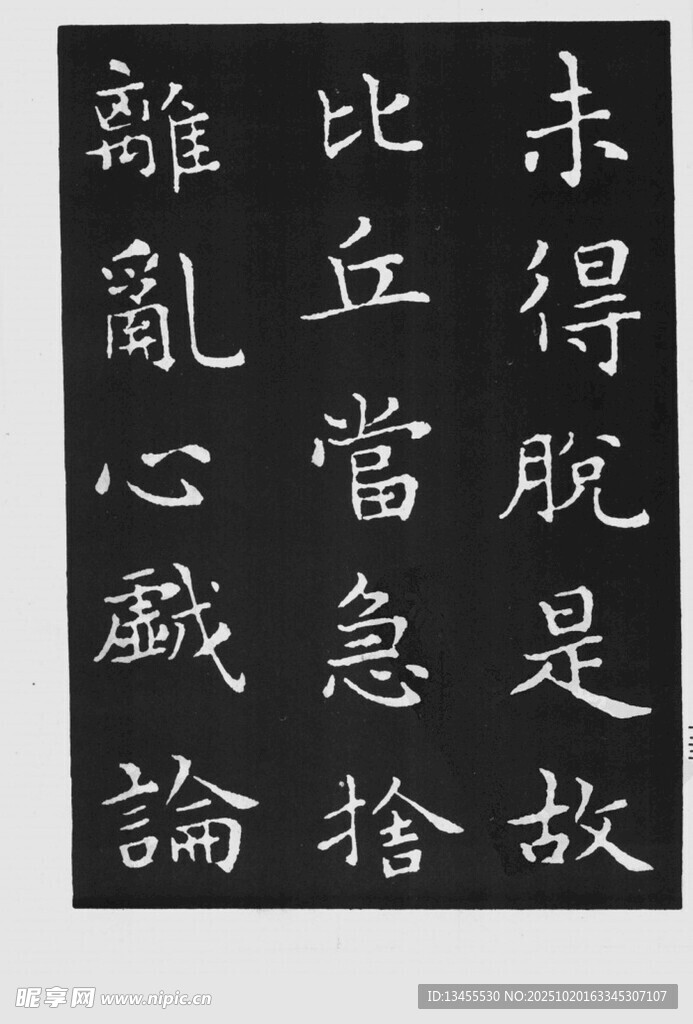 未得脫是故
比丘當急捨
離亂心戯論
昵享网 www.nipic.cn
ID:13455530 NO:20251020163345307107